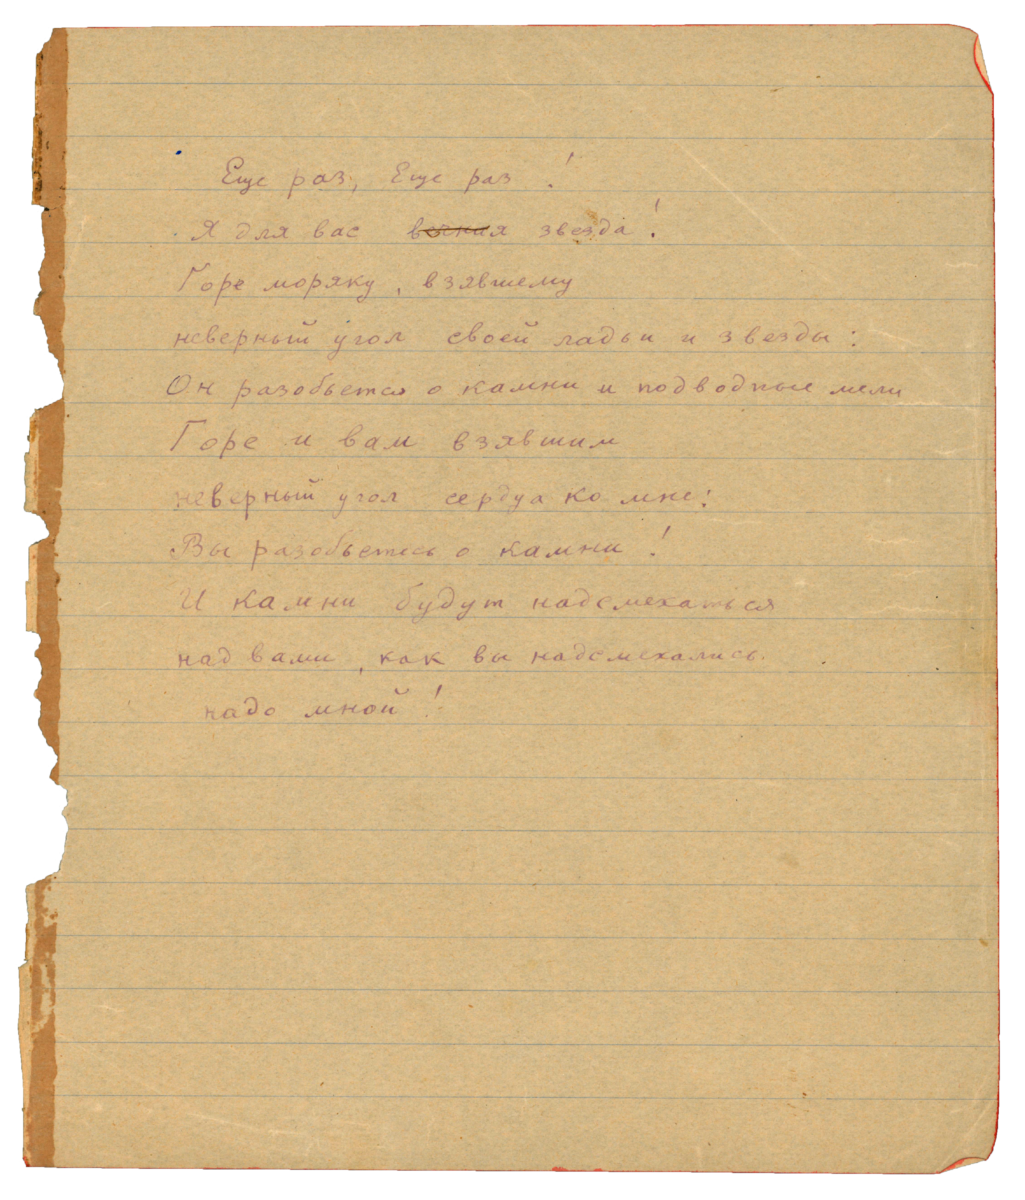 Еще раз, Еще раз!
Я для вас звезда!
Горе моряку, взявшему
неверный угол своей ладьи и звезды:
Он разобьется о камни и подводные мели
Горе и вам взявшим
неверный угол сердца ко мне:
Вы разобьетесь о камни!
И камни будут надсмехаться
над вами, как вы надсмехались
надо мной!